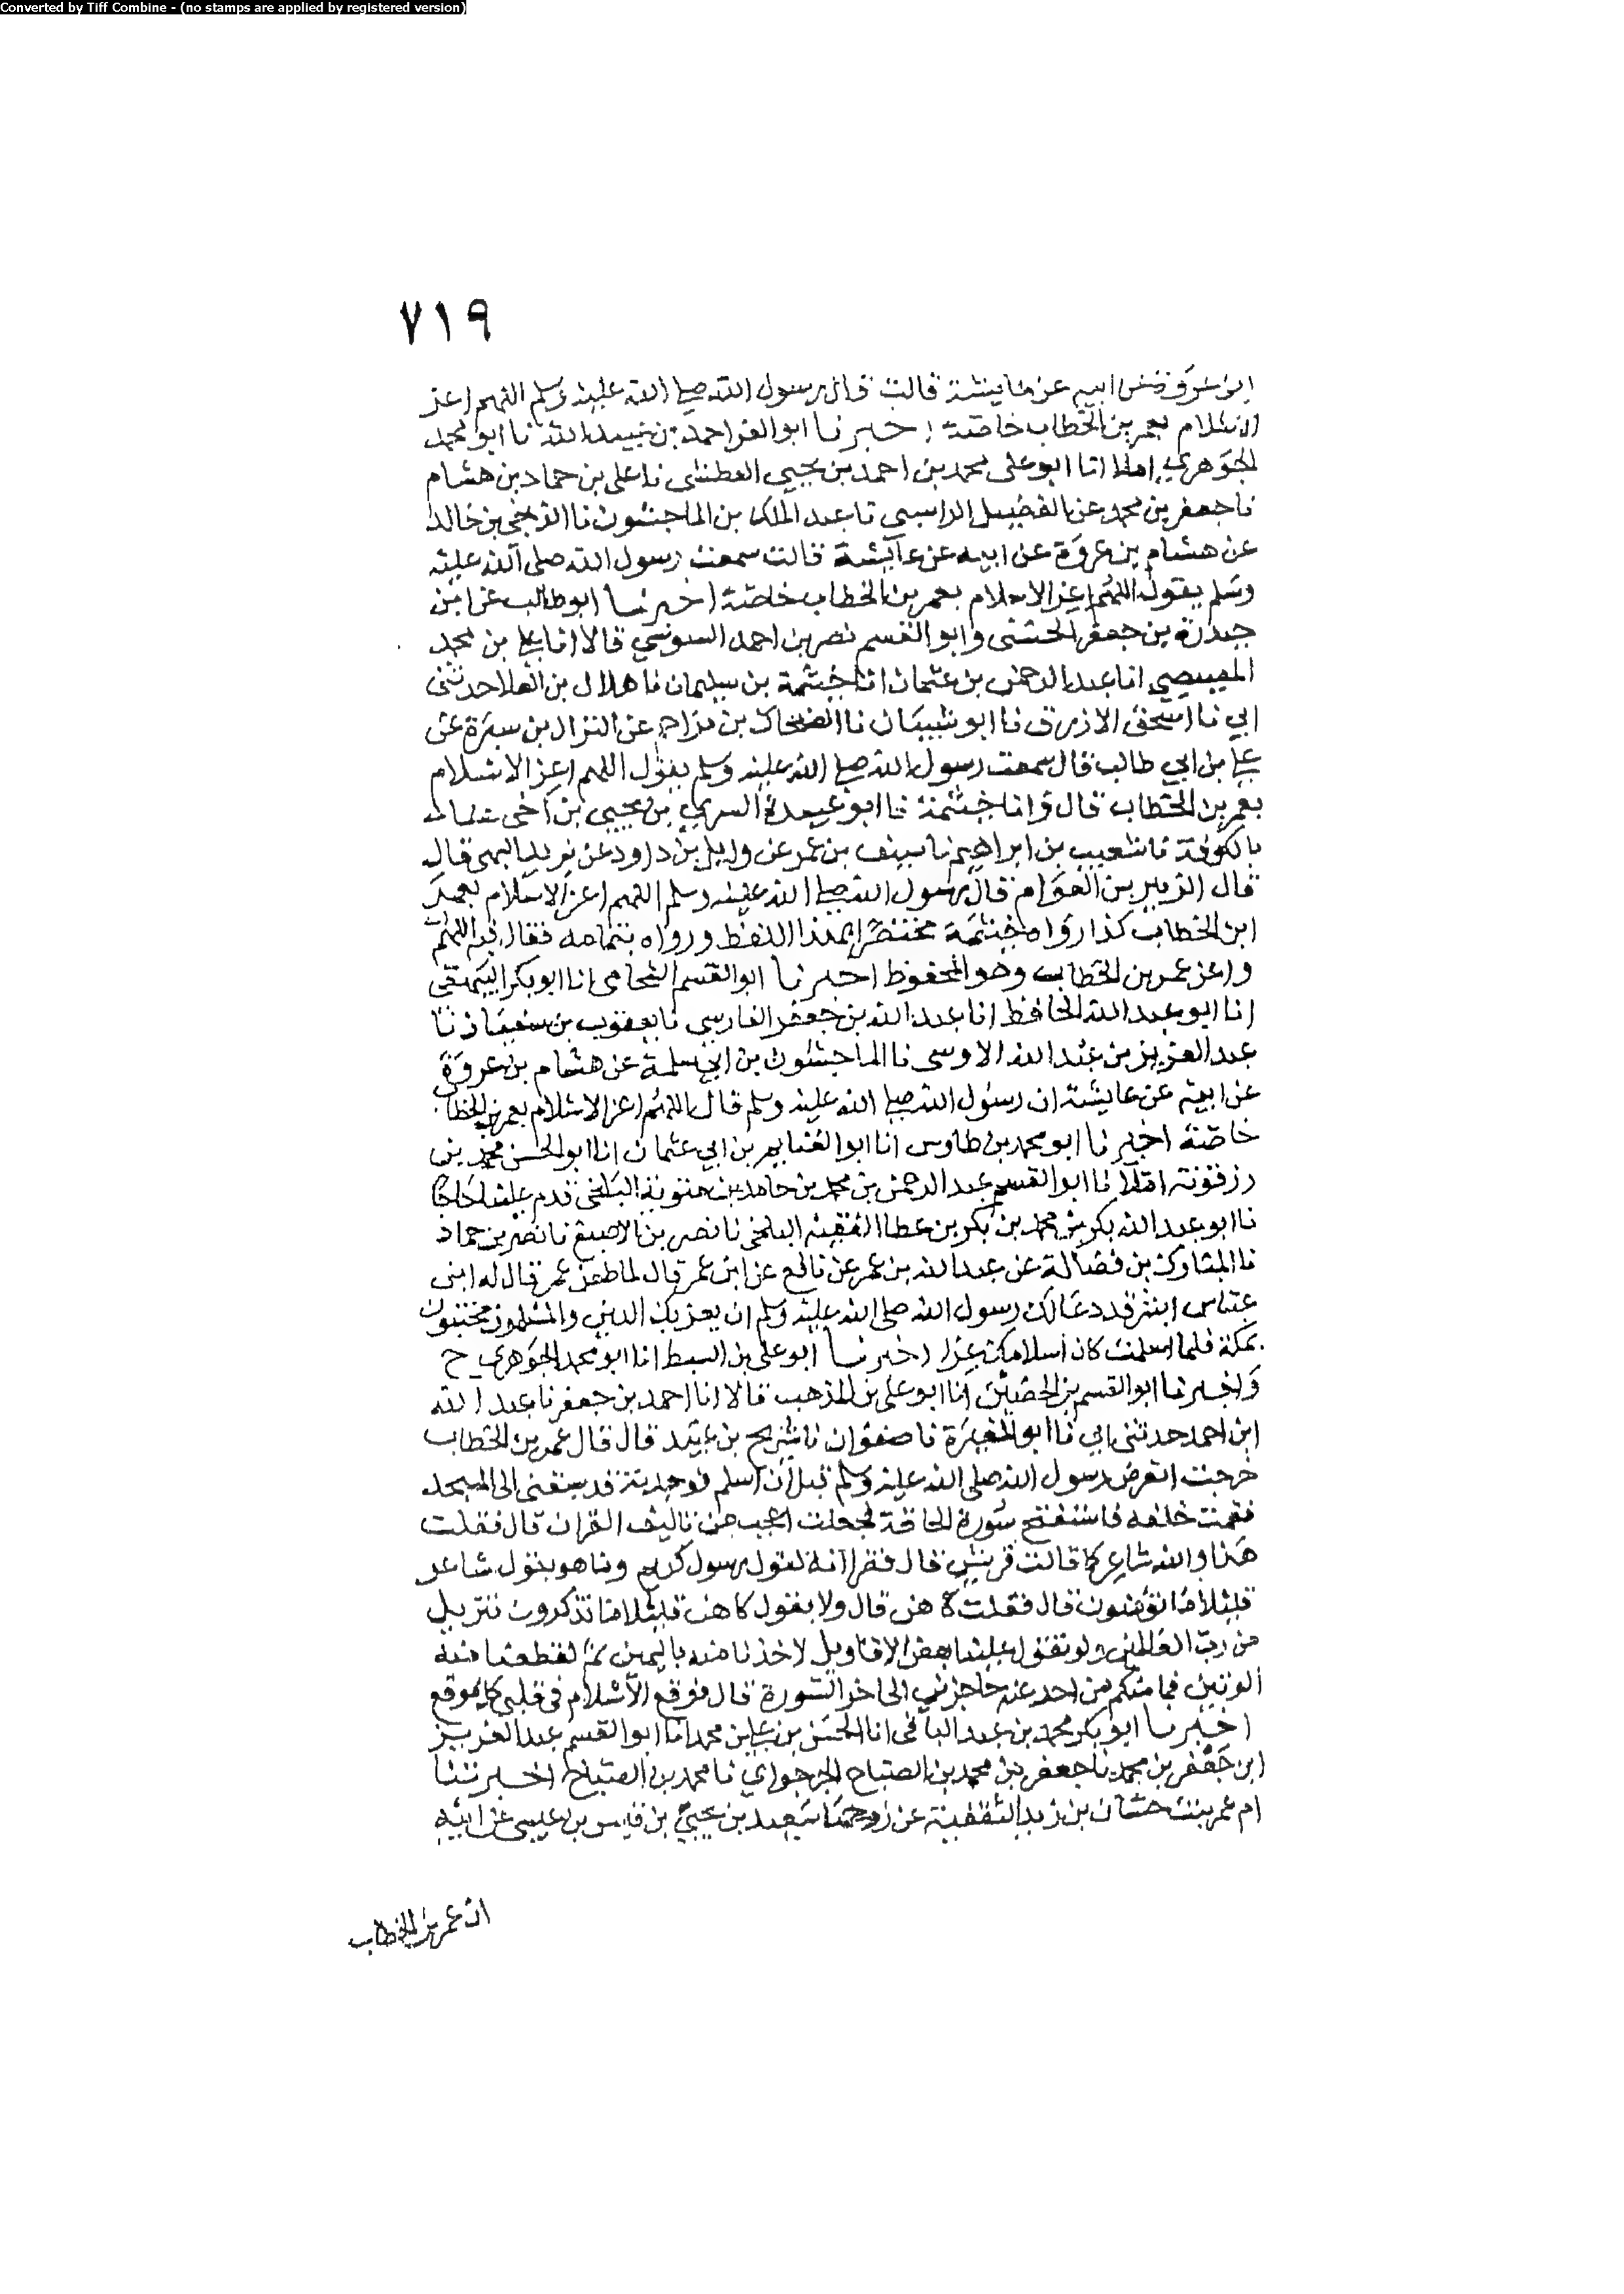 Converted by Tiff Combine - (no stamps are applied by registered version)
٧١٩
ابن عروة عن ابيه عن عايشة قالت قال رسول الله صلى الله عليه وسلم اللهم اعز
الاسلام بعمر بن الخطاب خاصة اخبرنا ابو العز احمد بن عبيد الله نا ابو محمد
الجوهري املا انا ابو على محمد بن احمد بن يحيى العطشى نا على بن حماد بن هشام
نا جعفر بن محمد عن الفضيل الراسبى نا عبد الملك بن الماجشون نا الزنجى بن خالد
عن هشام بن عروة عن ابيه عن عايشة قالت سمعت رسول الله صلى الله عليه
وسلم يقول اللهم اعز الاسلام بعمر بن الخطاب خاصة اخبرنا ابو طالب عز ابن
حيدرة بن جعفر الحسنى وابو القسم نصر بن احمد السوسي قالا انا على بن محمد
المصيصي انا عبد الرحمن بن عثمان انا خيثمة بن سليمان نا هلال بن العلا حدثنى
ابي نا اسحق الازرق نا ابو سنان نا الضحاك بن مزاحم عن النزال بن سبرة عن
على بن ابي طالب قال سمعت رسول الله صلى الله عليه وسلم يقول اللهم اعز الاسلام
بعمر بن الخطاب قال وانا خيثمة نا ابو عبيدة السري بن يحيى بن اخى هناد
بالكوفة نا شعيب بن ابراهيم نا سيف بن عمر عن وايل بن داود عن يزيد البهى قال
قال الزبير بن العوام قال رسول الله صلى الله عليه وسلم اللهم اعز الاسلام بعمر
ابن الخطاب كذا رواه خيثمة مختصرا بهذا اللفظ ورواه بتمامه فقال فيه اللهم
واعز عمر بن الخطاب وهو المحفوظ اخبرنا ابو القسم الشحامى انا ابو بكر البيهقى
انا ابو عبد الله الحافظ انا عبد الله بن جعفر الفارسي نا يعقوب بن سفيان نا
عبد العزيز بن عبد الله الاوسى نا الماجشون بن ابي سلمة عن هشام بن عروة
عن ابيه عن عايشة ان رسول الله صلى الله عليه وسلم قال اللهم اعز الاسلام بعمر بن الخطاب
خاصة اخبرنا ابو محمد بن طاوس انا ابو الغنايم بن ابي عثمان انا ابو الحسن محمد بن
رزقونة املا نا ابو القسم عبد الرحمن بن محمد بن حامد بن متوية البلخى قدم علينا حاجا
نا ابو عبد الله بكر بن محمد بن بكر بن عطا الفقيه البلخى نا نصر بن الاصبغ نا نصر بن حماد
نا المبارك بن فضالة عن عبد الله بن عمر عن نافع عن ابن عمر قال لما طعن عمر قال له ابن
عباس ابشر قد دعا لك رسول الله صلى الله عليه وسلم ان يعز بك الدين والمسلمون مختبون
بمكة فلما اسلمت كان اسلامك عزا اخبرنا ابو على بن السبط انا ابو محمد الجوهري ح
واخبرنا ابو القسم بن الحصين انا ابو على بن المذهب قالا انا احمد بن جعفر نا عبد الله
ابن احمد حدثنى ابي نا ابو المغيرة نا صفوان نا شريح بن عبيد قال قال عمر بن الخطاب
خرجت اتعرض رسول الله صلى الله عليه وسلم قبل ان اسلم فوجدته قد سبقنى الى المسجد
فقمت خلفه فاستفتح سورة الحاقة فجعلت اعجب من تاليف القران قال فقلت
هذا والله شاعر كما قالت قريش قال فقرا انه لقول رسول كريم وما هو بقول شاعر
قليلا ما تؤمنون قال فقلت كاهن قال ولا بقول كاهن قليلا ما تذكرون تنزيل
من رب العالمين ولو تقول علينا بعض الاقاويل لاخذنا منه باليمين ثم لقطعنا منه
الوتين فما منكم من احد عنه حاجزين الى اخر السورة قال فوقع الاسلام فى قلبى كل موقع
اخبرنا ابو بكر محمد بن عبد الباقى انا الحسن بن على بن محمد انا ابو القسم عبد العزيز
ابن جعفر بن محمد نا جعفر بن محمد بن الصباح الجرجراي نا محمد بن الصباح اخبرتنا
ام عمر بنت حسان بن زيد الثقفية عن زوجها سعيد بن يحيى بن قيس بن عيسى عن ابيه
ان عمر بن الخطاب